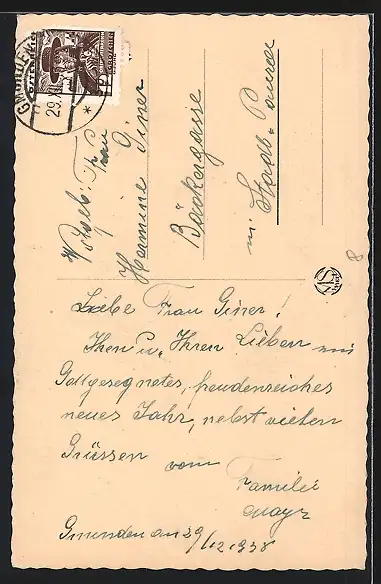 GMUNDEN
29.X
Wohlgeb: Frau
Hermine Giner
Bäckergasse
in Stadt-
Liebe Frau Giner!
Ihen u. Ihren Lieben ein
Gottgesegnetes, freudenreiches
neues Jahr, nebst vielen
Grüssen vom
Familie
Mayr
Gmunden am 29/12 1938